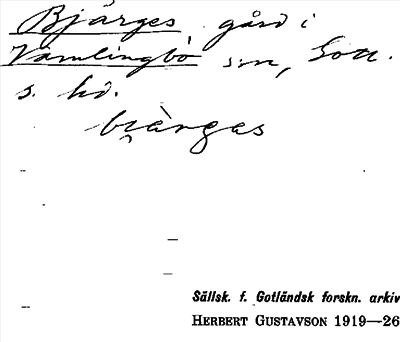 Bjärges, gård i
Vamlingbo sn, Gotl.
s. hd.
bi̯àrgas
Sällsk. f. Gotländsk forskn. arkiv
HERBERT GUSTAVSON 1919—26